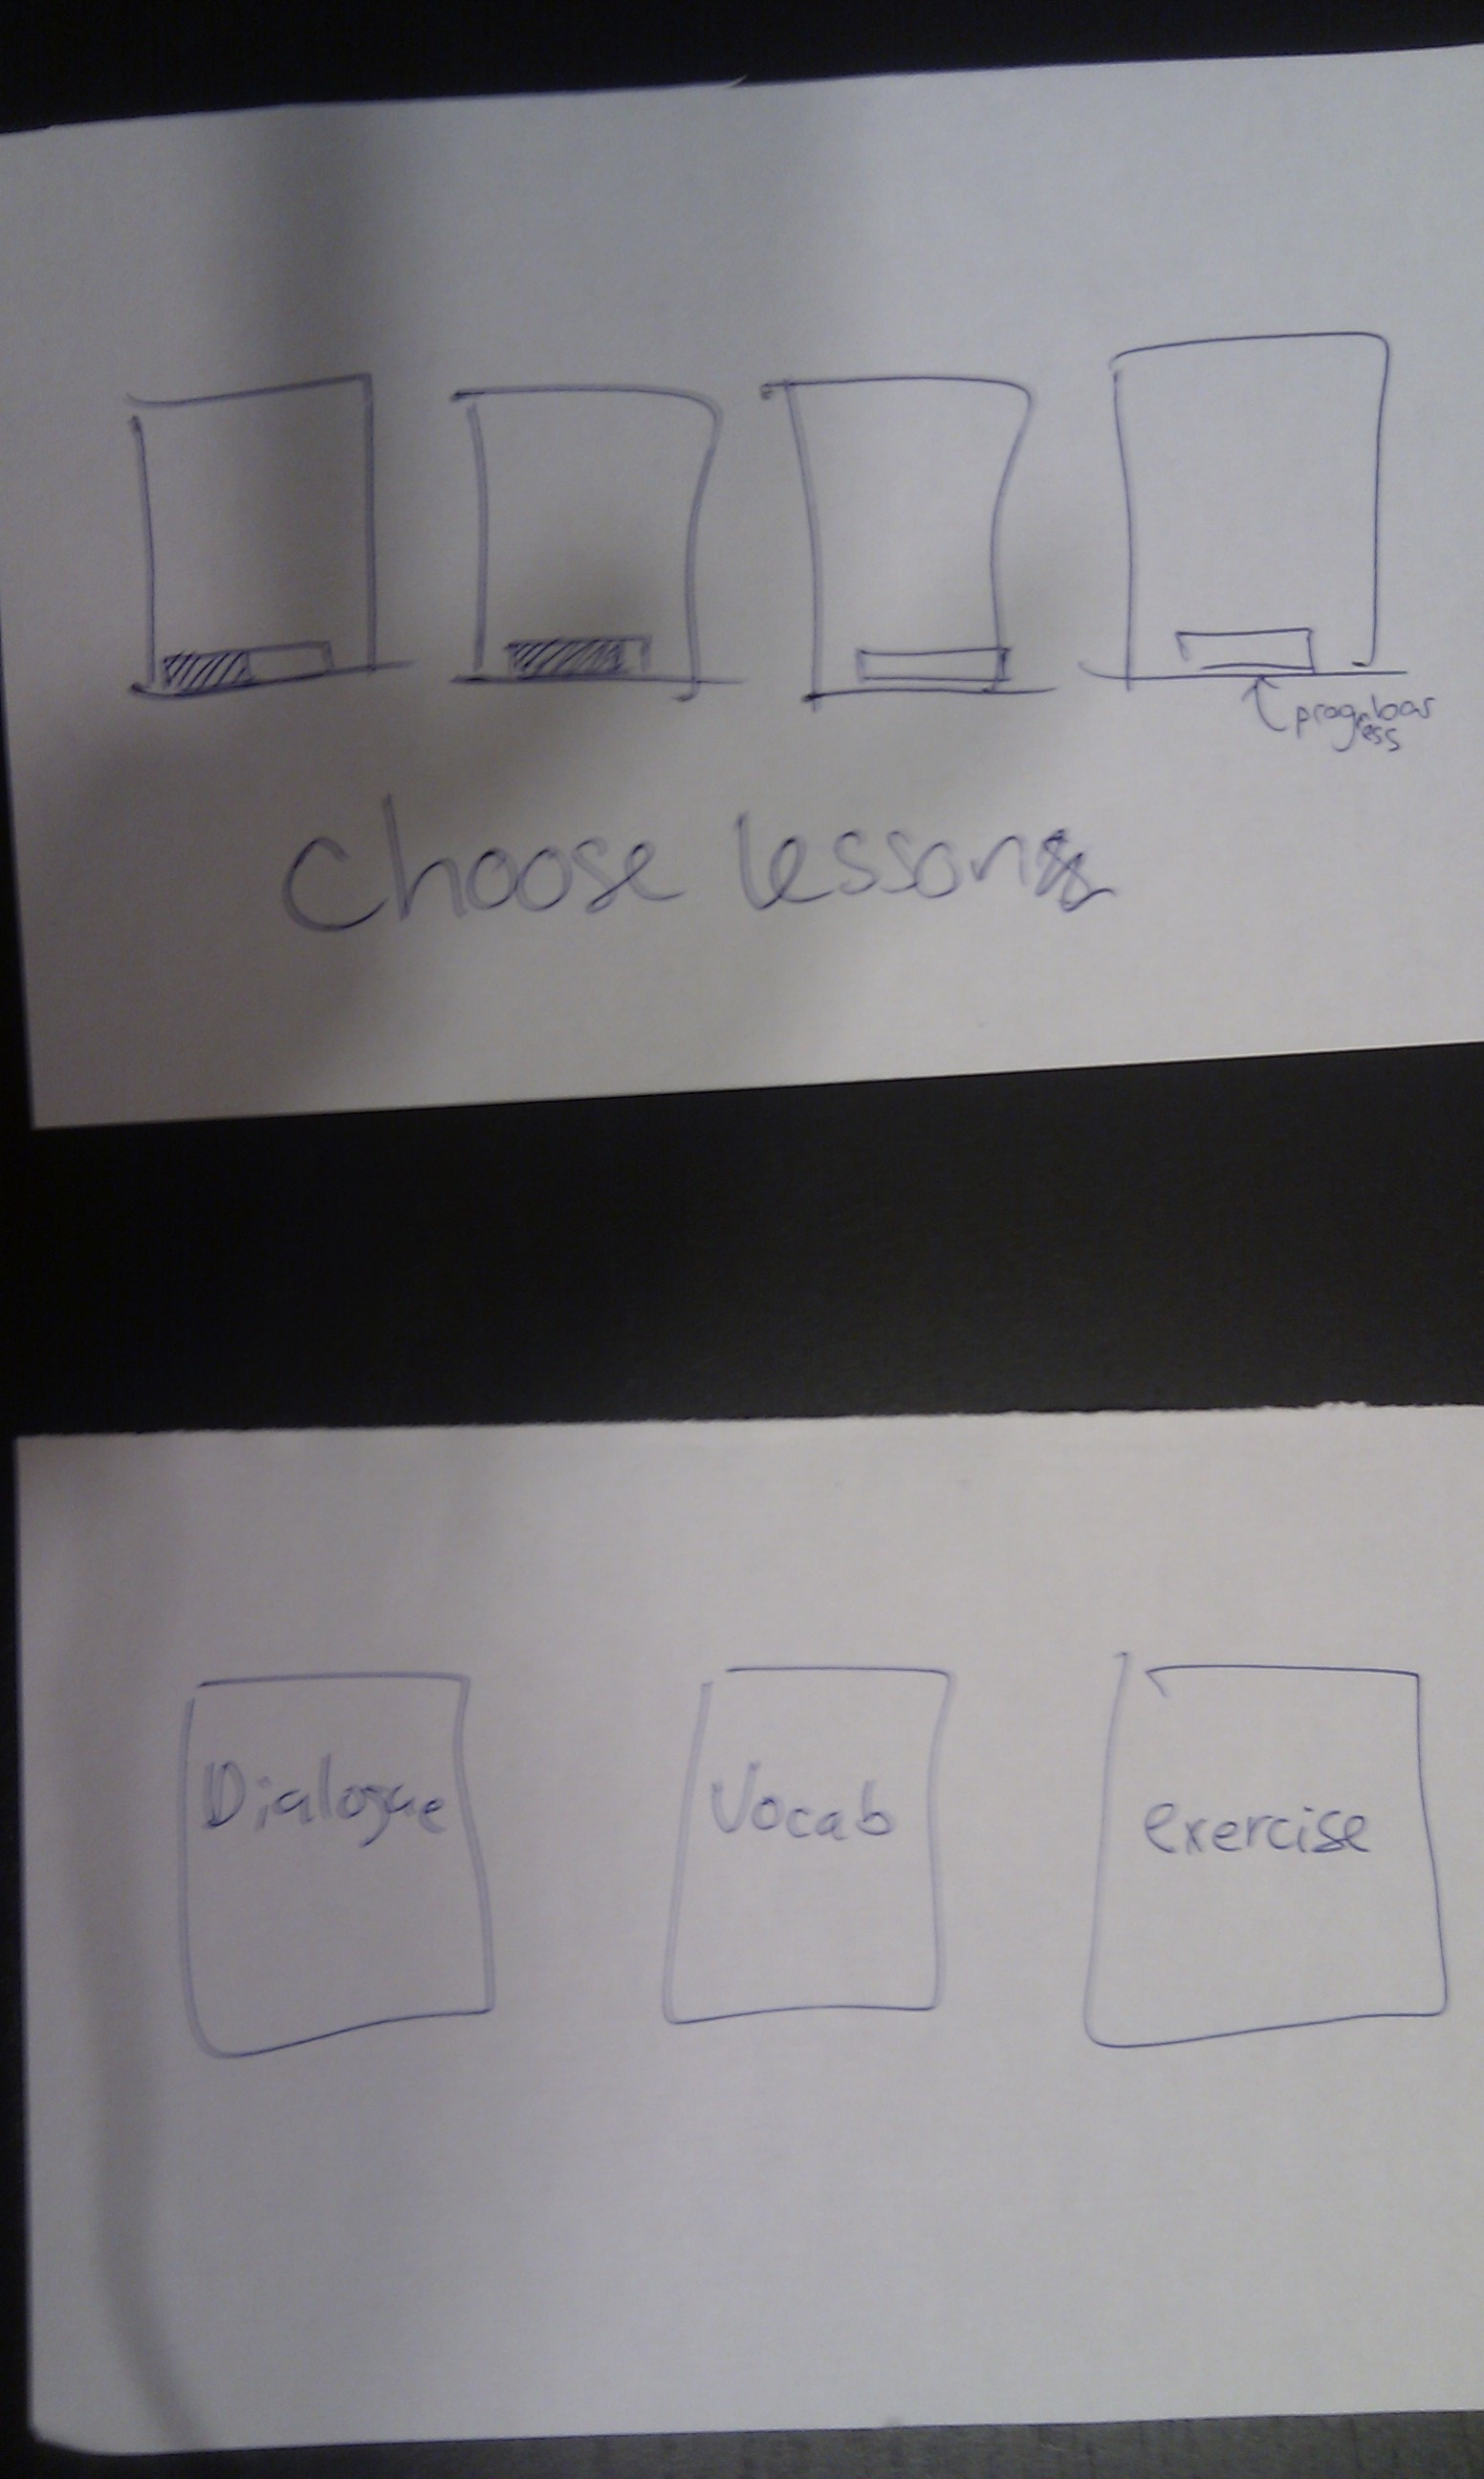 progress bar
Choose lessons
Dialogue
Vocab
exercise